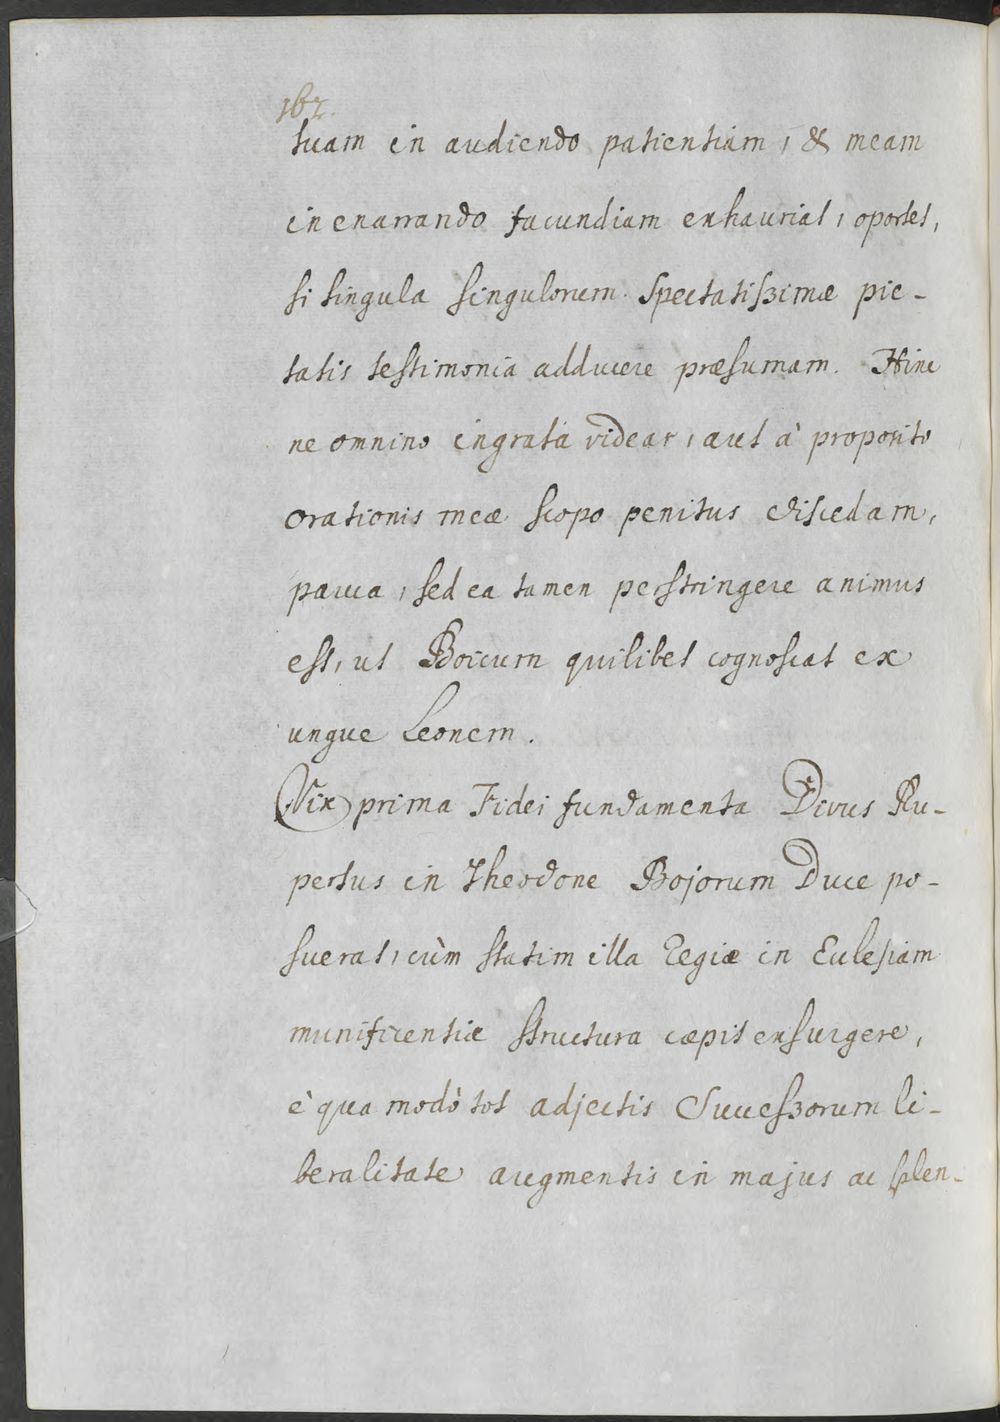 162.
tuam in audiendo patientiam, & meam
in enarrando facundiam exhaurias, oportet,
si singula singulorum spectatissimæ pie-
tatis testimonia adducere præsumam. Hinc
ne omnino ingrata videar, aut à proposito
orationis meæ scopo penitus discedam,
pauca, sed ea tamen perstringere animus
est, ut Boicum quilibet cognoscat ex
ungue Leonem.
Vix prima Fidei fundamenta Divus Ru-
pertus in Theodone Bojorum Duce po-
suerat, cùm statim illa Regiæ in Ecclesiam
munificentiæ structura cæpit exsurgere,
è qua modò tot adjectis Successorum li-
beralitate augmentis in majus ac splen-